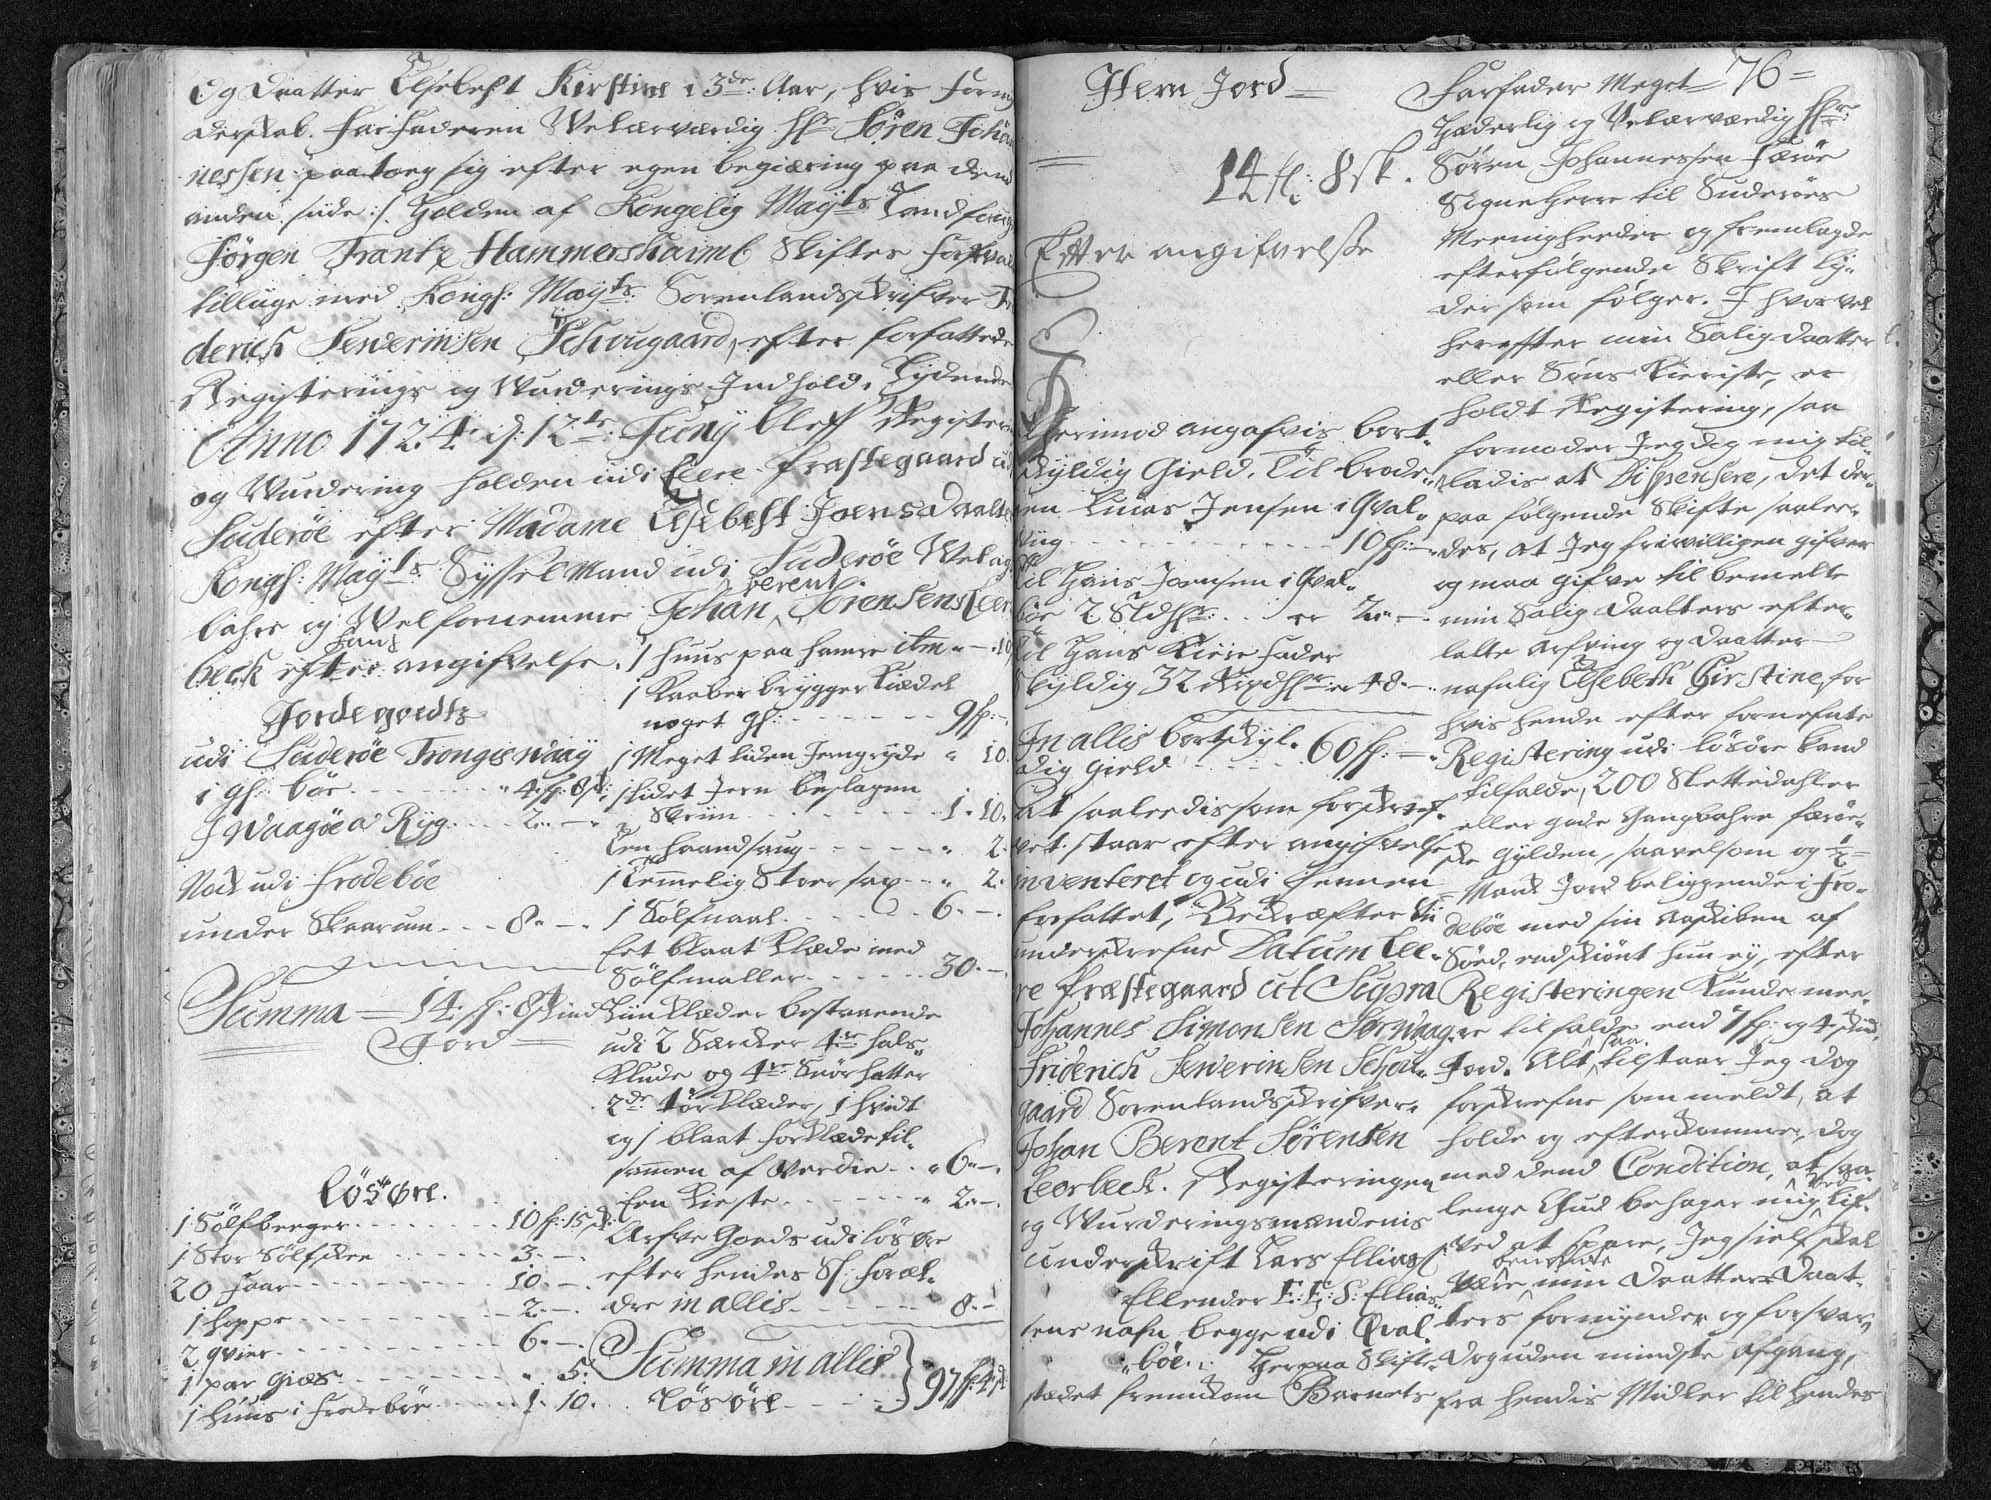 og Daatter Elsebeht Kirstine i 3de: Aar, hvis Formÿ
derskab. Farfaderen Velærværdig Hr Sören Johan
nessen paatoeg sig efter egen begiæring paa dend
anden side :/ holden af Kongelig Mayts Landfoug
Jörgen Frantz Hammershaimb Skiftes Forval
tillige med Kongl: Mayts: Sorenlandskrifver Fri
derich Sewerinsen Schougaard, efter forfattede
Registerings og Vurderings Indhold. Lydende
Anno 1724. d. 12te: Junÿ bleff Register
og Vurdering holden udi Eere Præstegaard ud
Suderöe efter Madame Elsebeht Joensdaatter
Kongl: Mayts: Sysselmand udi Suderöe Velag
bahre og Velfornemme Johan Berent Sörensens Leer
beck efter hans angifvelse.
Jordegodtz
udi Suderöe Trongiswaag
i gl: böe - - - 4 fl: 8 sk:
I Waagöe a Ryg - - - 2 - -
Noch udi Frodeböe
under Skaarum - - - 8 - -
Summa = 14: fl: 8 skind
Jord =
Lösöre.
1 Sölfbeeger - - - 10 fl: 15 sk:
1 Stor Sölfskee - - - 3 - -
20 Faar - - - 10 - -
1 Hoppe - - - 2 - -
2 qvier - - - 6 - -
1 par Giæs - - - 5.
1 Huus i Frodeböe - - - 1. 10.
1 Huus paa Hamre itm - - 10
1 Kaaber brygger Kiedel
noget gl: - - - 9 fl: -
1 Meget liden Jerngryde " 10.
1 lidet Jern beslagen
Skriin - - - 1. 10.
Een Haandsaug - - - 2.
1 Temmelig Stoer sax - - 2.
1 Sölfnaal - - - 6. -
Eet blaat Klæde med
Sölfmaller - - - 30. -
Liinklæder bestaaende
udi 2 Særcker 4re Hals
Klude og 4re Snörhatter
2de törklæder, 1 hvidt
og 1 blaat forklæde til
sammen af Verdie - - 6 -.
Een Kieste - - - 2 -.
Arfve Goeds udi lösöre
efter hendes Sl: Foræl
dre in allis - - - 8. -
Summa in allis
Lösöre - - - 97 fl: 4 sk
Item Jord =
14 fl: 8 sk.
Efter angifvelsse
Herimod angafvis bort
skyldig Gield. Til broder
en Lucas Jensen i Qval
vig - - - 10 fl: -
til Hans Joensen i Qval
böe 2 Sldlr: - - er 2 - -
til Hans Kiere Fader
skyldig 32 Rixdlr: er 48. -
In allis bortskyl
dig Gield - - - 60 fl: -
At saaledis som forskref
vet staar efter angifvelse
inventeret og udi Pennen
forfattet, Bekræfter vi
underskrefne Datum Ee
re Præstegaard ut Supra
Johannes Simonsen Sörwaag.
Friderich Sewerinsen Schou
gaard Sorenlandskrifver.
Johan Berent Sörensen
Leerbeck. Registeringen
og Vurderingsmændenis
underskrift Lars Ellias
Ellender E: E: S: Ellias
sens nafn begge udi Qval
böe. Herpaa Skift
stædet fremkom Barnets
76 =
Farfader Meget
Hæderlig og Velærværdig Hr:
Sören Johannessen Færöe
Sogneherre til Suderöes
Meenigheeder og fremlagde
efterfölgende Skrift ly
der som fölger. I hvorvel
herefter min Salig daatter
eller Söns Kieriste, er
holdt Registering, saa
formoder Jeg dog mig til
ladis at Dispensere, det der
paa fölgende Skifte saalee
des, at Jeg frivilligen gifver
og maa gifve til bemelte
min Salig Daatters efter
latte Arfving og Daatter
nafnlig Elsebeth Cirstine, for
hvis hende efter fornefnte
Registering udi lösöre kand
tilfalde, 200 Slettedahler
eller gode Gangbahre færöe
ske Gylden, saavelsom og ½
Marck Jord beliggende i Fro
deböe med sin Afskiben af
Söed, endskiönt hun ey, efter
Registeringen kunde mee
re tilfalde end 7 fl: og 4 skind
Jord. Alt saa tilstaar Jeg dog
forskrefne som meldt, at
holde og efterkomme, dog
med dend Condition, at saa
lenge Gud behager mig ved Lif
ved at spare, Jeg sielf skal
være bemelte min Daatters Daat
ters formynder og forsvar,
dog uden mindste Afgang,
fra hendis Midler til hendes